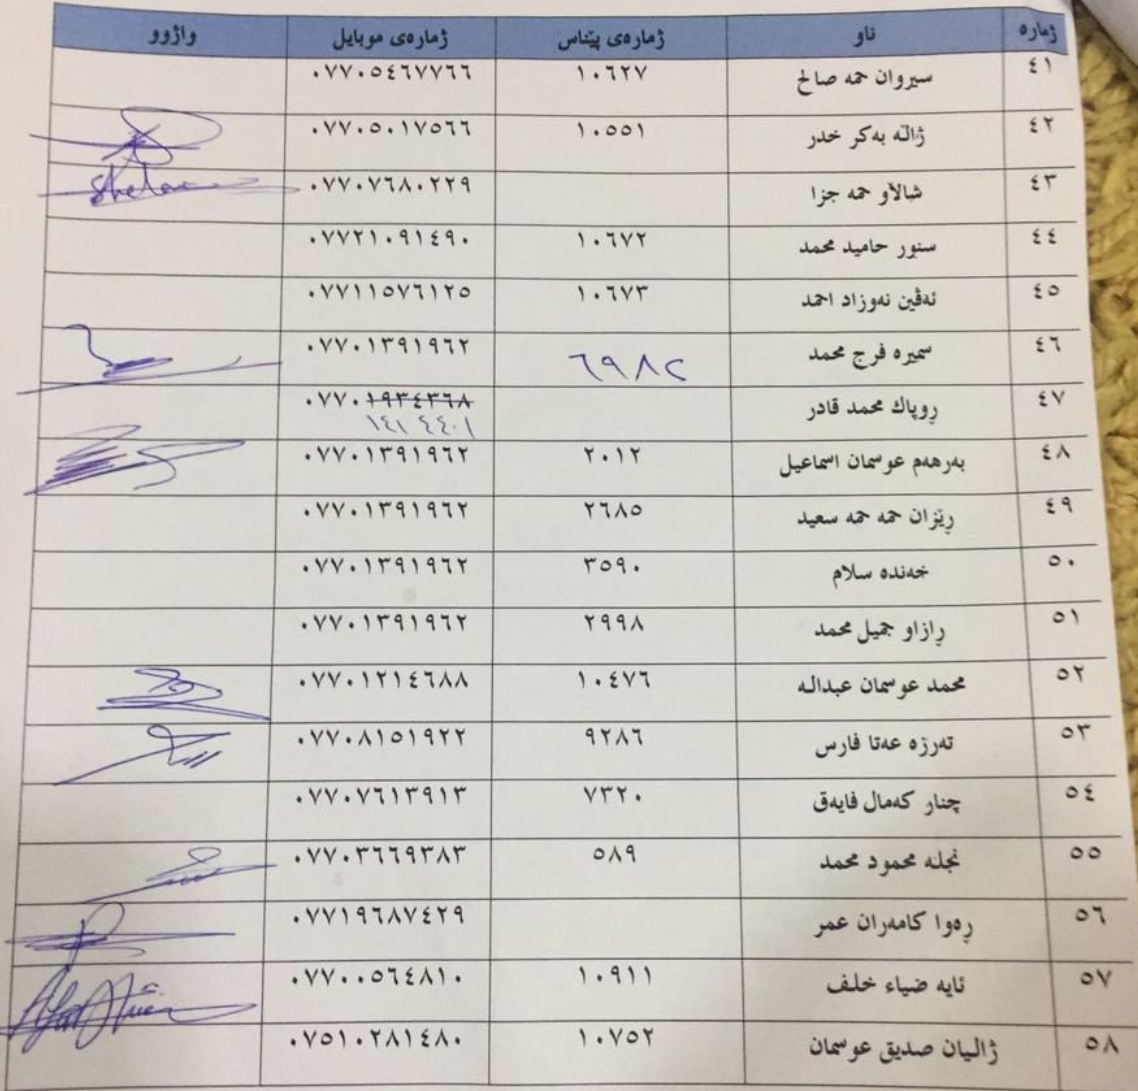 ژمارە ناو ژمارەی پێناس ژمارەی موبایل واژوو
٤١ سیروان حمه صالح ١٠٦٢٧ ٠٧٧٠٥٤٦٧٧٦٦
٤٢ ژاڵه بەكر خدر ١٠٥٥١ ٠٧٧٠٥٠١٧٥٦٦
٤٣ شالاو حمه جزا ٠٧٧٠٧٦٨٠٢٢٩ Shelaw
٤٤ سنور حامید محمد ١٠٦٧٢ ٠٧٧٢١٠٩١٤٩٠
٤٥ ئەڤین نەوزاد احمد ١٠٦٧٣ ٠٧٧١١٥٧٦١٢٥
٤٦ سمیره فرج محمد ٦٩٨٢ ٠٧٧٠١٣٩١٩٦٢
٤٧ ڕوپاك محمد قادر ٠٧٧٠١٩٣٤٣٦٨
١٤١ ٤٤٠١
٤٨ بەرهەم عوسمان اسماعیل ٢٠١٢ ٠٧٧٠١٣٩١٩٦٢
٤٩ ڕێزان حمه حمه سعید ٢٦٨٥ ٠٧٧٠١٣٩١٩٦٢
٥٠ خەنده سلام ٣٥٩٠ ٠٧٧٠١٣٩١٩٦٢
٥١ ڕازاو جمیل محمد ٢٩٩٨ ٠٧٧٠١٣٩١٩٦٢
٥٢ محمد عوسمان عبداله ١٠٤٧٦ ٠٧٧٠١٢١٤٦٨٨
٥٣ تەرزه عەتا فارس ٩٢٨٦ ٠٧٧٠٨١٥١٩٢٢
٥٤ چنار كەمال فایەق ٧٣٢٠ ٠٧٧٠٧٦١٣٩١٣
٥٥ نجله محمود محمد ٥٨٩ ٠٧٧٠٣٦٦٩٣٨٣
٥٦ ڕەوا كامەران عمر ٠٧٧١٩٦٨٧٤٢٩
٥٧ ئایه ضیاء خلف ١٠٩١١ ٠٧٧٠٠٥٦٤٨١٠
٥٨ ژالیان صدیق عوسمان ١٠٧٥٢ ٠٧٥١٠٢٨١٤٨٠